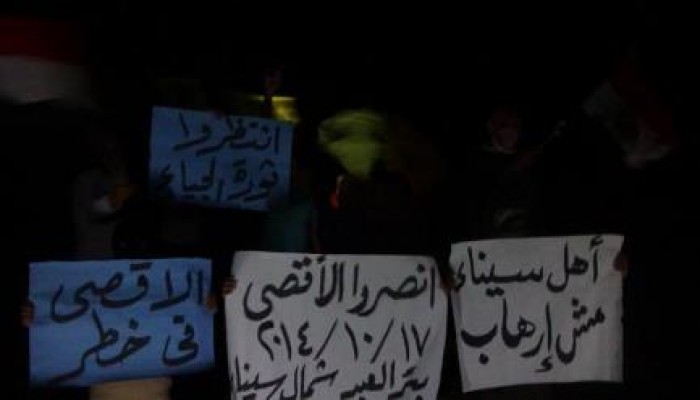 انتظروا
ثورة الجياع
الاقصى
فى خطر
انصروا الأقصى
٢٠١٤/١٠/١٧
بئر العبد شمال سيناء
أهل سيناء
مش إرهاب